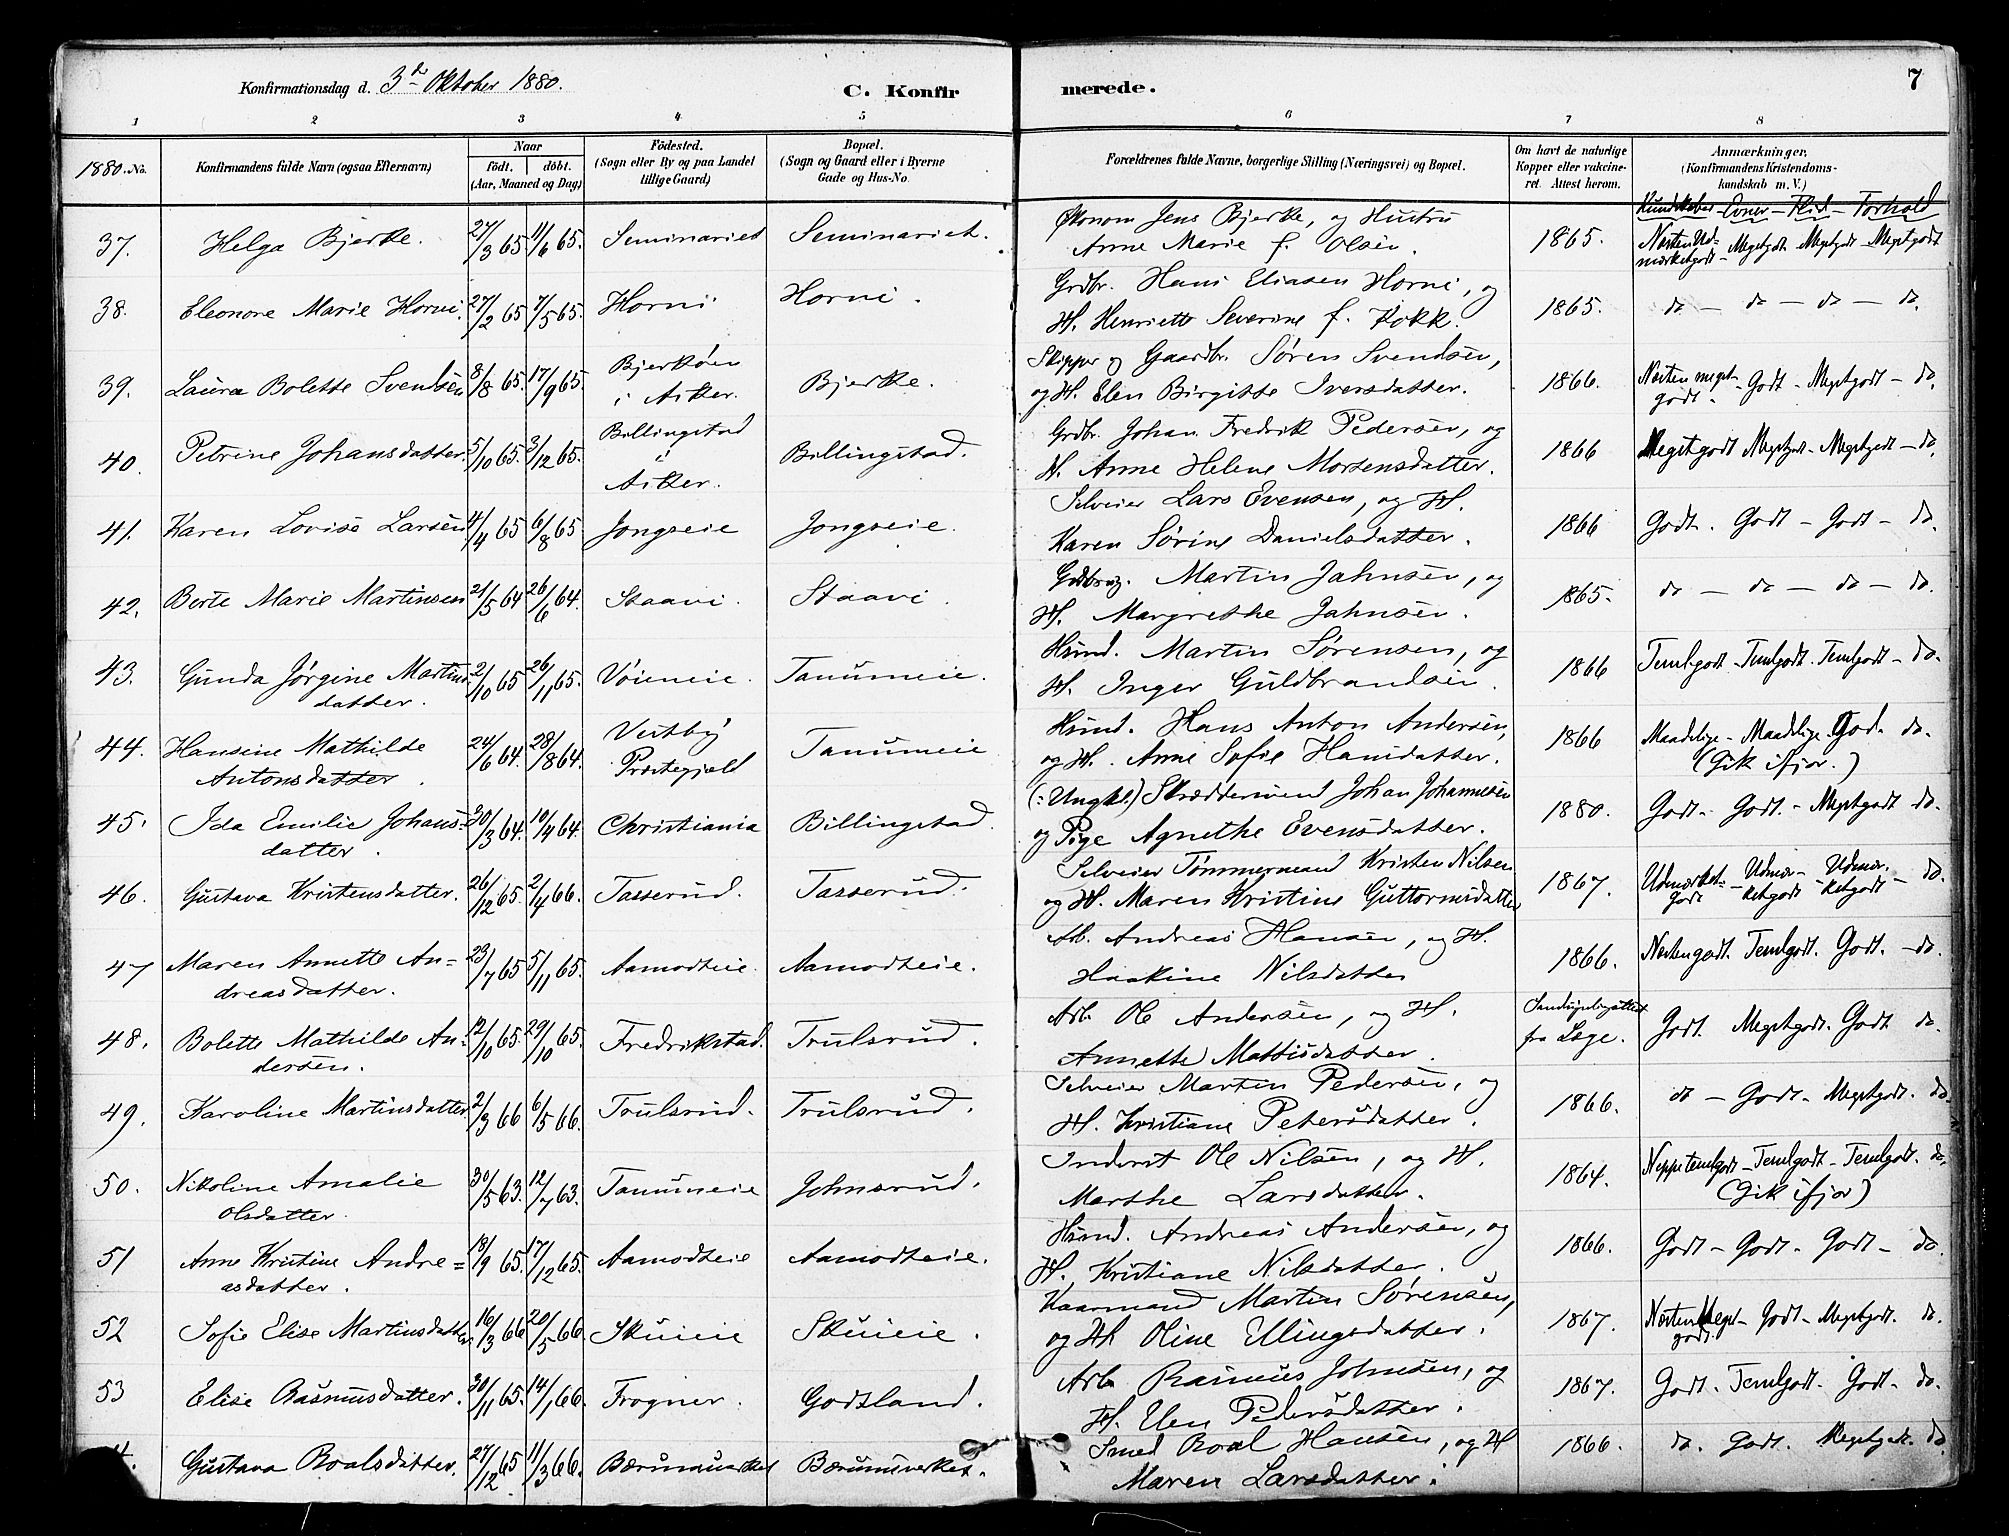 Konfirmationsdag d. 3de Oktober 1880.
C. Konfirmerede.
7
1 2 3 4 5 6 7 8
1880. No.
Konfirmandens fulde Navn (ogsaa Efternavn)
Naar
födt. döbt.
(Aar, Maaned og Dag)
Födested.
(Sogn eller By og paa Landet
tillige Gaard)
Bopæl.
(Sogn og Gaard eller i Byerne
Gade og Hus-No.
Forældrenes fulde Navne, borgerlige Stilling (Næringsvei) og Bopæl.
Om havt de naturlige
Kopper eller vakcine-
ret. Attest herom.
Anmærkninger.
(Konfirmandens Kristendoms-
kundskab m. V.)
Kundskaber - Evner - Flid - Forhold
37. Helga Bjerke. 27/3 65. 11/6 65. Seminariet Seminariet. Økonom Jens Bjerke, og Hustru
Anne Marie f. Olsen. 1865. Næsten Ud-
mærketgodt - Megetgodt. Megetgodt - Megetgodt
38. Eleonore Marie Horni. 27/2 65 7/5 65. Horni Horni. Grdbr. Hans Eliasen Horni, og
H. Henriette Severine f. Kokk. 1865. do - do - do - do.
39. Laura Bolette Svendsen 8/8 65. 17/9 65. Bjerköen
i Asker. Bjerke. Skipper og Gaardbr. Søren Svendsen,
og H. Elen Birgitte Iversdatter. 1866. Næsten meget
godt. - Godt - Megetgodt - do.
40. Petrine Johansdatter. 5/10 65. 3/12 65. Billingstad
i
Asker. Billingstad. Grdbr. Johan Fredrik Pedersen, og
H. Anne Helene Mortensdatter. 1866 Megetgodt Megetgodt - Megetgodt - do.
41. Karen Lovise Larsen 4/4 65 6/8 65 Jongseie Jongseie. Selveier Lars Evensen, og H.
Karen Sørine Danielsdatter. 1866 Godt. Godt - Godt - do.
42. Berte Marie Martinsen 21/5 64 26/6 64. Staavi. Staavi. Grdbrug. Martin Jahnsen, og
H. Margrethe Jahnsen. 1865. do - do - do - do.
43. Gunda Jørgine Martins
datter. 2/10 65 26/11 65. Vöieneie. Tanumeie. Hsmd. Martin Sørensen, og
H. Inger Guldbrandsen. 1866 Temlgodt - Temlgodt. Temlgodt - do.
44. Hansine Mathilde
Antonsdatter. 24/6 64. 28/8 64. Vestby
Prestegjeld Tanumeie Hsmd. Hans Anton Andersen,
og H. Anne Sofie Hansdatter. 1866 Maadelige - Maadelige. God. do.
(Gik ifjor.)
45. Ida Emilie Johans-
datter. 30/3 64. 10/4 64. Christiania Billingstad. (: Ungkl.) Skræddersvend Johan Johannesen
og Pige Agnethe Evensdatter. 1880. Godt - Godt. - Megetgodt do.
46. Gustava Kristensdatter. 26/12 65. 2/4 66. Tasserud. Tasserud. Selveier Tømmermand Kristen Nilsen
og H. Maren Kristine Guttormsdatter 1867. Udmærket-
godt - Udmær-
ketgodt - Udmær.
ketgodt - do.
47 Maren Annette An=
dreasdatter. 23/7 65 5/11 65. Aamodteie. Aamodteie. Arb. Andreas Hansen, og H.
Haakine Nilsdatter 1866. Næstengodt. Temlgodt. Godt. - do
48. Bolette Mathilde An-
dersen. 12/10 65. 29/10 65. Fredrikstad. Trulsrud. Arb. Ole Andersen, og H.
Annette Mathisdatter.
fra Læge. Godt. Megetgodt. Godt. do.
49. Karoline Martinsdatter 2/3 66 6/5 66. Trulsrud. Trulsrud. Selveier Martin Pedersen, og
H. Kristiane Petersdatter. 1866. do - Godt - Megetgodt. do.
50. Nikoline Amalie
Olsdatter. 30/5 63. 12/7 63. Tanumeie Johnsrud. Inderst Ole Nilsen, og H.
Marthe Larsdatter. 1864. Neppe temlgodt - Temlgodt - Temlgodt. do.
(Gik ifjor)
51 Anne Kristine Andre=
asdatter. 18/9 65. 17/12 65. Aamodteie Aamodteie. Hsmd. Andreas Andersen, og
H. Kristiane Nilsdatter. 1866. Godt - Godt. Godt - do.
52 Sofie Elise Martinsdatter 16/3 66 20/5 66 Skuieie Skuieie. Kaarmand Martin Sørensen,
og H. Oline Ellingsdatter. 1867. Næsten Meget-
godt. Godt - Megetgodt. do.
53 Elise Rasmusdatter. 30/11 65. 14/1 66. Frogner. Godtland. Arb. Rasmus Johnsen, og
H. Elen Pedersdatter. 1867. Godt. Temlgodt. Godt. do.
4. Gustava Roalsdatter. 27/12 65 11/3 66. Bærumsverket Bærumsverket. Smed Roal Hansen, og H
Maren Larsdatter. 1866. do. Godt. Megetgodt. do.